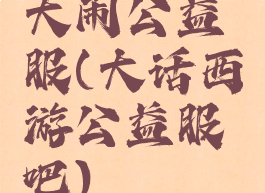 大闹公益
服(大话西
游公益服
吧)